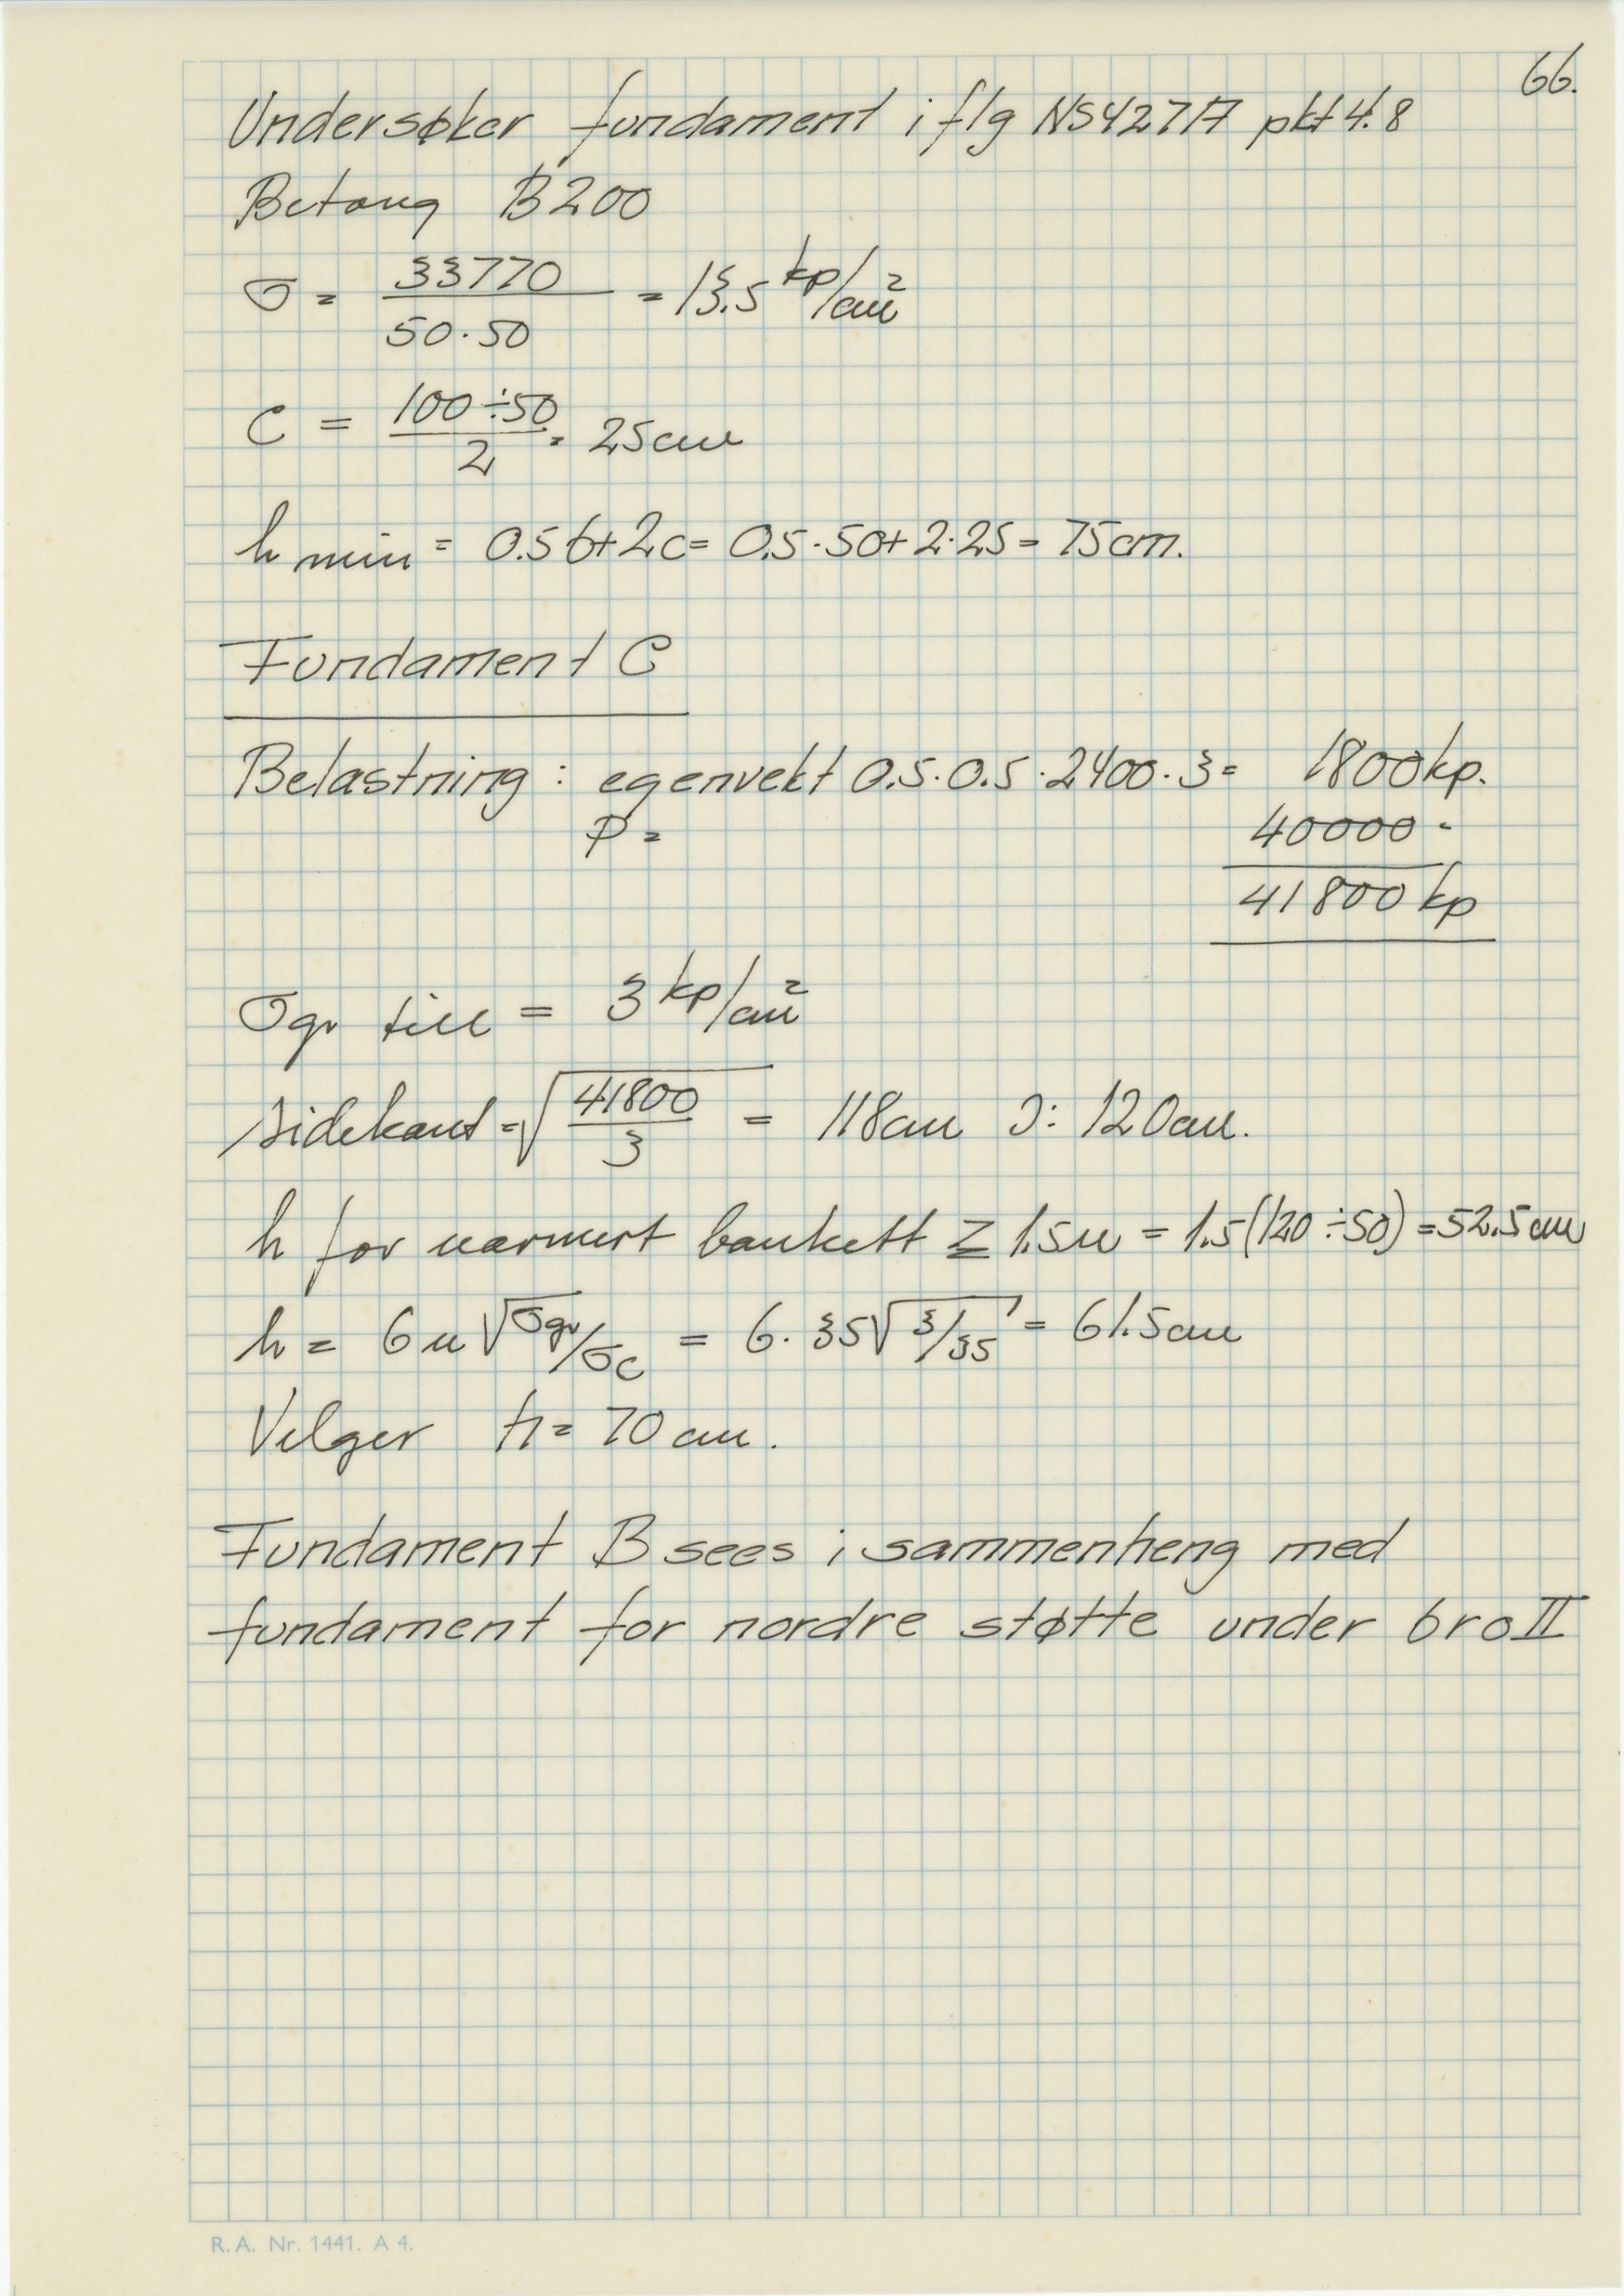 66.
Undersøker fundament iflg NS427A pkt 4.8
Betong B200
σ = 33770 / 50·50 = 13.5 kp/cm²
C = 100÷50 / 2 = 25cm
h min = 0.5b+2c= 0.5·50+2·25= 75cm.
Fundament C
Belastning : egenvekt 0.5·0.5·2400·3= 1800kp.
P = 40000 -
41800 kp
σgr till = 3 kp/cm²
sidekant =√41800/3 = 118cm ɔ: 120cm.
h for uarmert bankett ≥ 1.5u = 1.5(120÷50) =52.5cm
h = 6u √σgr/σc = 6·35√3/35 = 61.5cm
Velger h= 70cm.
Fundament B sees i sammenheng med
fundament for nordre støtte under bro II
R.A. Nr. 1441. A 4.